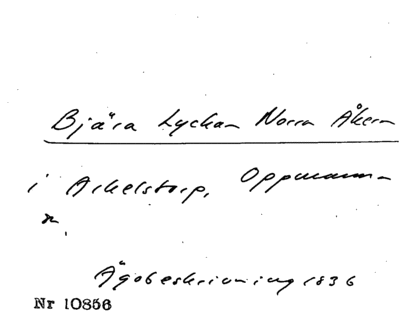 Bjära Lyckan Norra Åkern
i Arkelstorp, Oppmanna
sn.
Ägobeskrivning 1836
Nr 10856